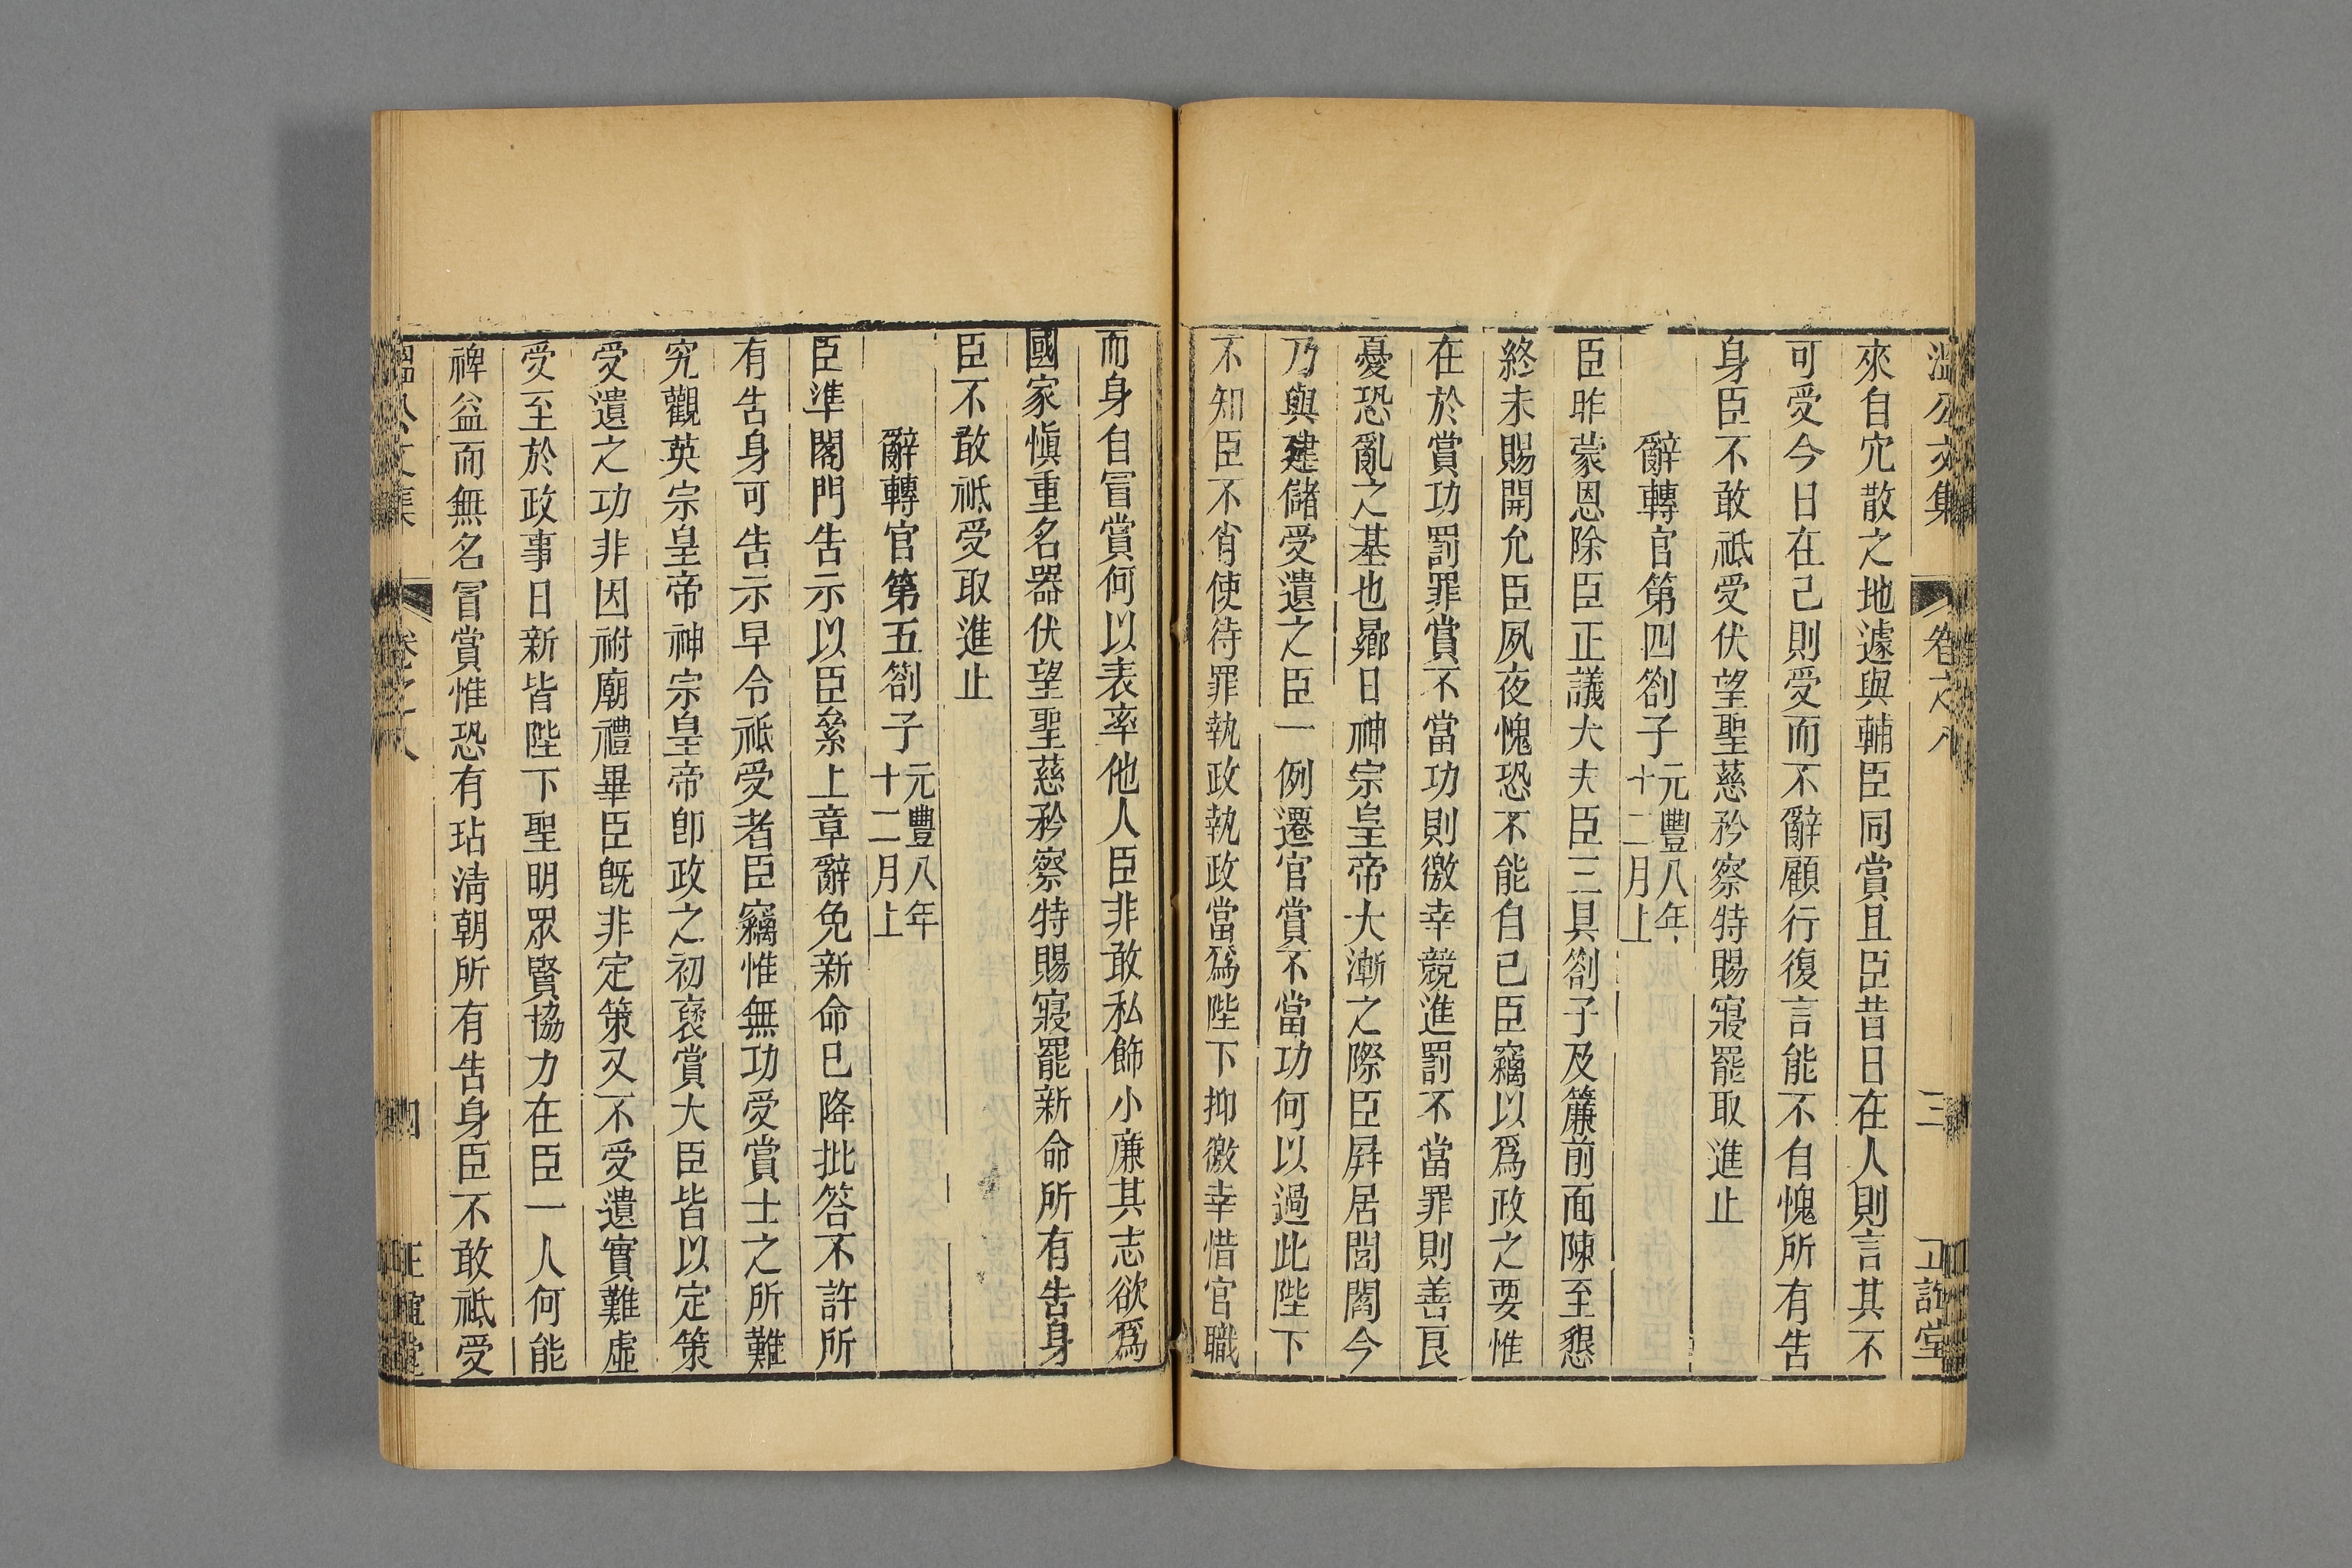 溫公文集 卷之八 三 正誼堂
來自宂散之地遽與輔臣同賞且臣昔日在人則言其不
可受今日在己則受而不辭顧行復言能不自愧所有告
身臣不敢祗受伏望聖慈矜察特賜寢罷取進止
辭轉官第四劄子元豐八年十二月上
臣昨蒙恩除臣正議大夫臣三具劄子及簾前面陳至懇
終未賜開允臣夙夜愧恐不能自已臣竊以爲政之要惟
在於賞功罰罪賞不當功則徼幸競進罰不當罪則善良
憂恐亂之基也曏日神宗皇帝大漸之際臣屏居閭閻今
乃與建儲受遺之臣一例遷官賞不當功何以過此陛下
不知臣不肖使待罪執政執政當爲陛下抑徼幸惜官職
而身自冒賞何以表率他人臣非敢私飾小廉其志欲爲
國家愼重名器伏望聖慈矜察特賜寢罷新命所有告身
臣不敢祗受取進止
辭轉官第五劄子元豐八年十二月上
臣準閤門告示以臣絫上章辭免新命已降批答不許所
有告身可告示早令祗受者臣竊惟無功受賞士之所難
究觀英宗皇帝神宗皇帝卽政之初褒賞大臣皆以定策
受遺之功非因祔廟禮畢臣旣非定策又不受遺實難虛
受至於政事日新皆陛下聖明眾賢協力在臣一人何能
裨益而無名冒賞惟恐有玷淸朝所有告身臣不敢祗受
溫公文集 卷之八 四 正誼堂